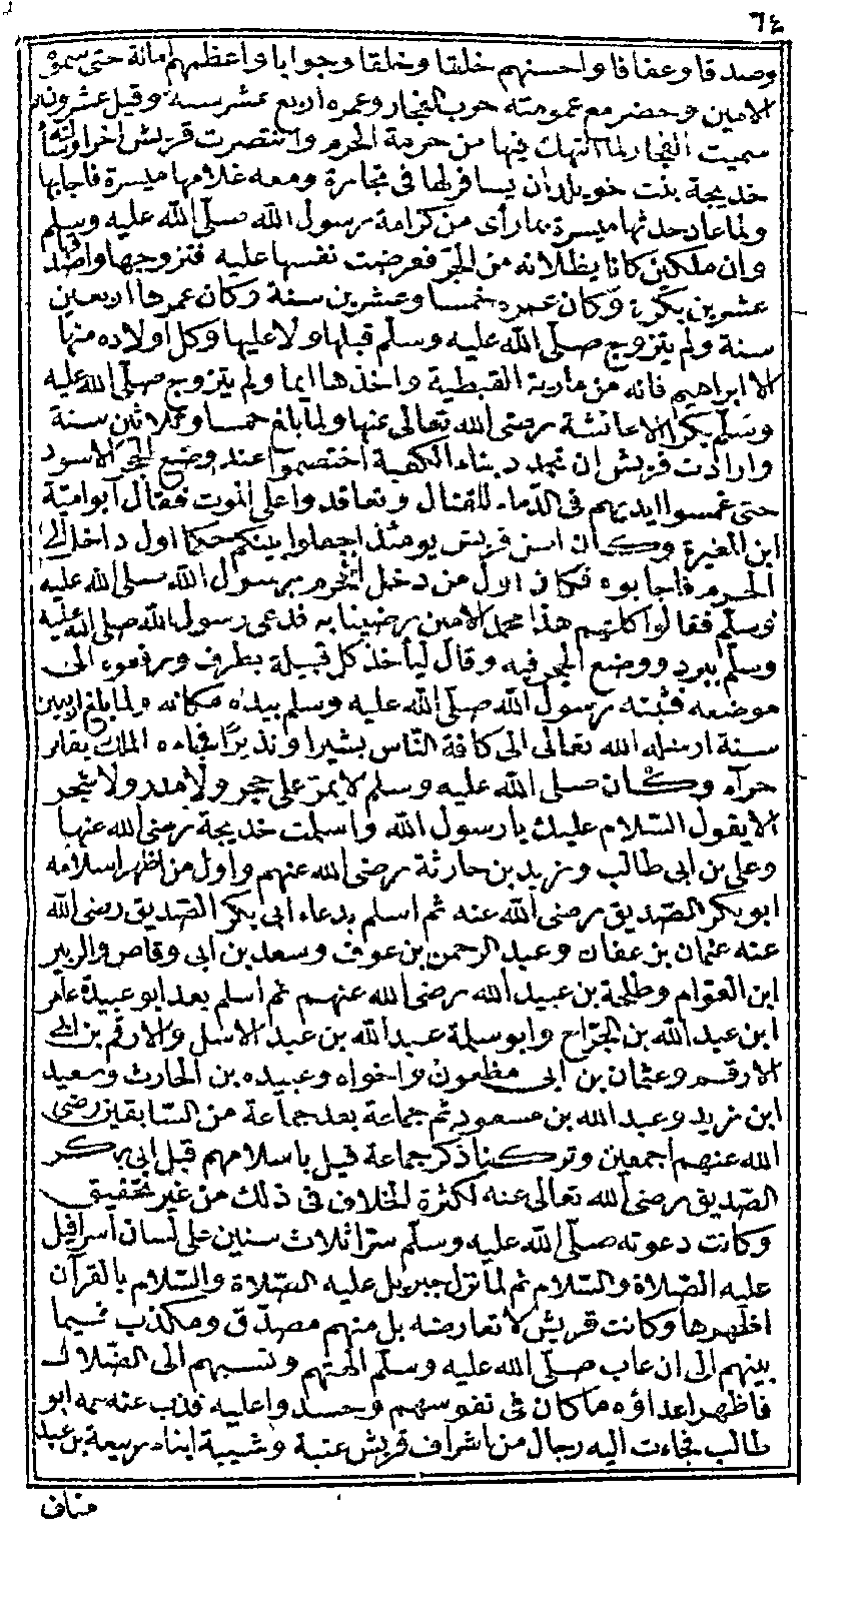 ٦٤
وصدقا وعفافا واحسنهم خلقا وخلقا وجوابا واعظمهم امانة حتى سموه
الامين وحضر مع عمومته حرب الفجار وعمره اربع عشر سنة وقيل عشرون
سميت الفجار لما انتهك فيها من حرمة الحرم وانتصرت قريش اخرا
خديجة بنت خويلد ان يسافر لها فى تجارة ومعه غلامها ميسرة فاجابها
ولما عاد حدثها ميسرة بما رأى من كرامة رسول الله صلى الله عليه وسلم
وان ملكين كانا يظلانه من الحر فعرضت نفسها عليه فتزوجها واصدقها
عشرين بكرة وكان عمره خمسا وعشرين سنة وكان عمرها اربعين
سنة ولم يتزوج صلى الله عليه وسلم قبلها ولا عليها وكل اولاده منها
الا ابراهيم فانه من مارية القبطية واخذها ايما ولم يتزوج صلى الله عليه
وسلم بكرا الا عائشة رضى الله تعالى عنها ولما بلغ خمسا وثلاثين سنة
وارادت قريش ان تجدد بناء الكعبة اختصموا عند وضع الحجر الاسود
حتى غمسوا ايديهم فى الدماء للقتال وتعاقدوا على الموت فقال ابو امية
ابن المغيرة وكان اسن قريش يومئذ اجعلوا بينكم حكما اول داخل الى
الحرم فاجابوه فكان اول من دخل الحرم رسول الله صلى الله عليه
وسلم فقالوا كلهم هذا محمد الامين رضينا به فدعى رسول الله صلى الله عليه
وسلم ببرد ووضع الحجر فيه وقال ليأخذ كل قبيلة بطرف ورفعوه الى
موضعه فثبته رسول الله صلى الله عليه وسلم بيده مكانه ولما بلغ اربعين
سنة ارسله الله تعالى الى كافة الناس بشيرا ونذيرا فجاءه الملك بغار
حرآء وكان صلى الله عليه وسلم لا يمر على حجر ولا مدر ولا شجر
الا يقول السلام عليك يا رسول الله واسلمت خديجة رضى الله عنها
وعلى بن ابى طالب وزيد بن حارثة رضى الله عنهم واول من اظهر اسلامه
ابو بكر الصديق رضى الله عنه ثم اسلم بدعاء ابى بكر الصديق رضى الله
عنه عثمان بن عفان وعبد الرحمن بن عوف وسعد بن ابى وقاص والزبير
ابن العوام وطلحة بن عبيد الله رضى الله عنهم ثم اسلم بعد ابو عبيدة عامر
ابن عبد الله بن الجراح وابو سلمة عبد الله بن عبد الاسل والارقم بن ابى
الارقم وعثمان بن ابى مظعون واخواه وعبيده بن الحارث وسعيد
ابن زيد وعبد الله بن مسعود ثم جماعة بعد جماعة من السابقين رضى
الله عنهم اجمعين وتركنا ذكر جماعة قيل باسلامهم قبل ابى بكر
الصديق رضى الله تعالى عنه لكثرة الخلاف فى ذلك من غير تحقيق
وكانت دعوته صلى الله عليه وسلم سرا ثلاث سنين على لسان اسرافيل
عليه الصلاة والسلام ثم لما نزل جبريل عليه الصلاة والسلام بالقرآن
اظهرها وكانت قريش لا تعارضه بل منهم مصدق ومكذب فيما
بينهم الى ان عاب صلى الله عليه وسلم الهتهم ونسبهم الى الضلال
فاظهر اعداؤه ما كان فى نفوسهم وحسدوا عليه فذب عنه عمه ابو
طالب فجاءت اليه رجال من اشراف قريش عتبة وشيبة ابناء ربيعة بن عبد
مناف